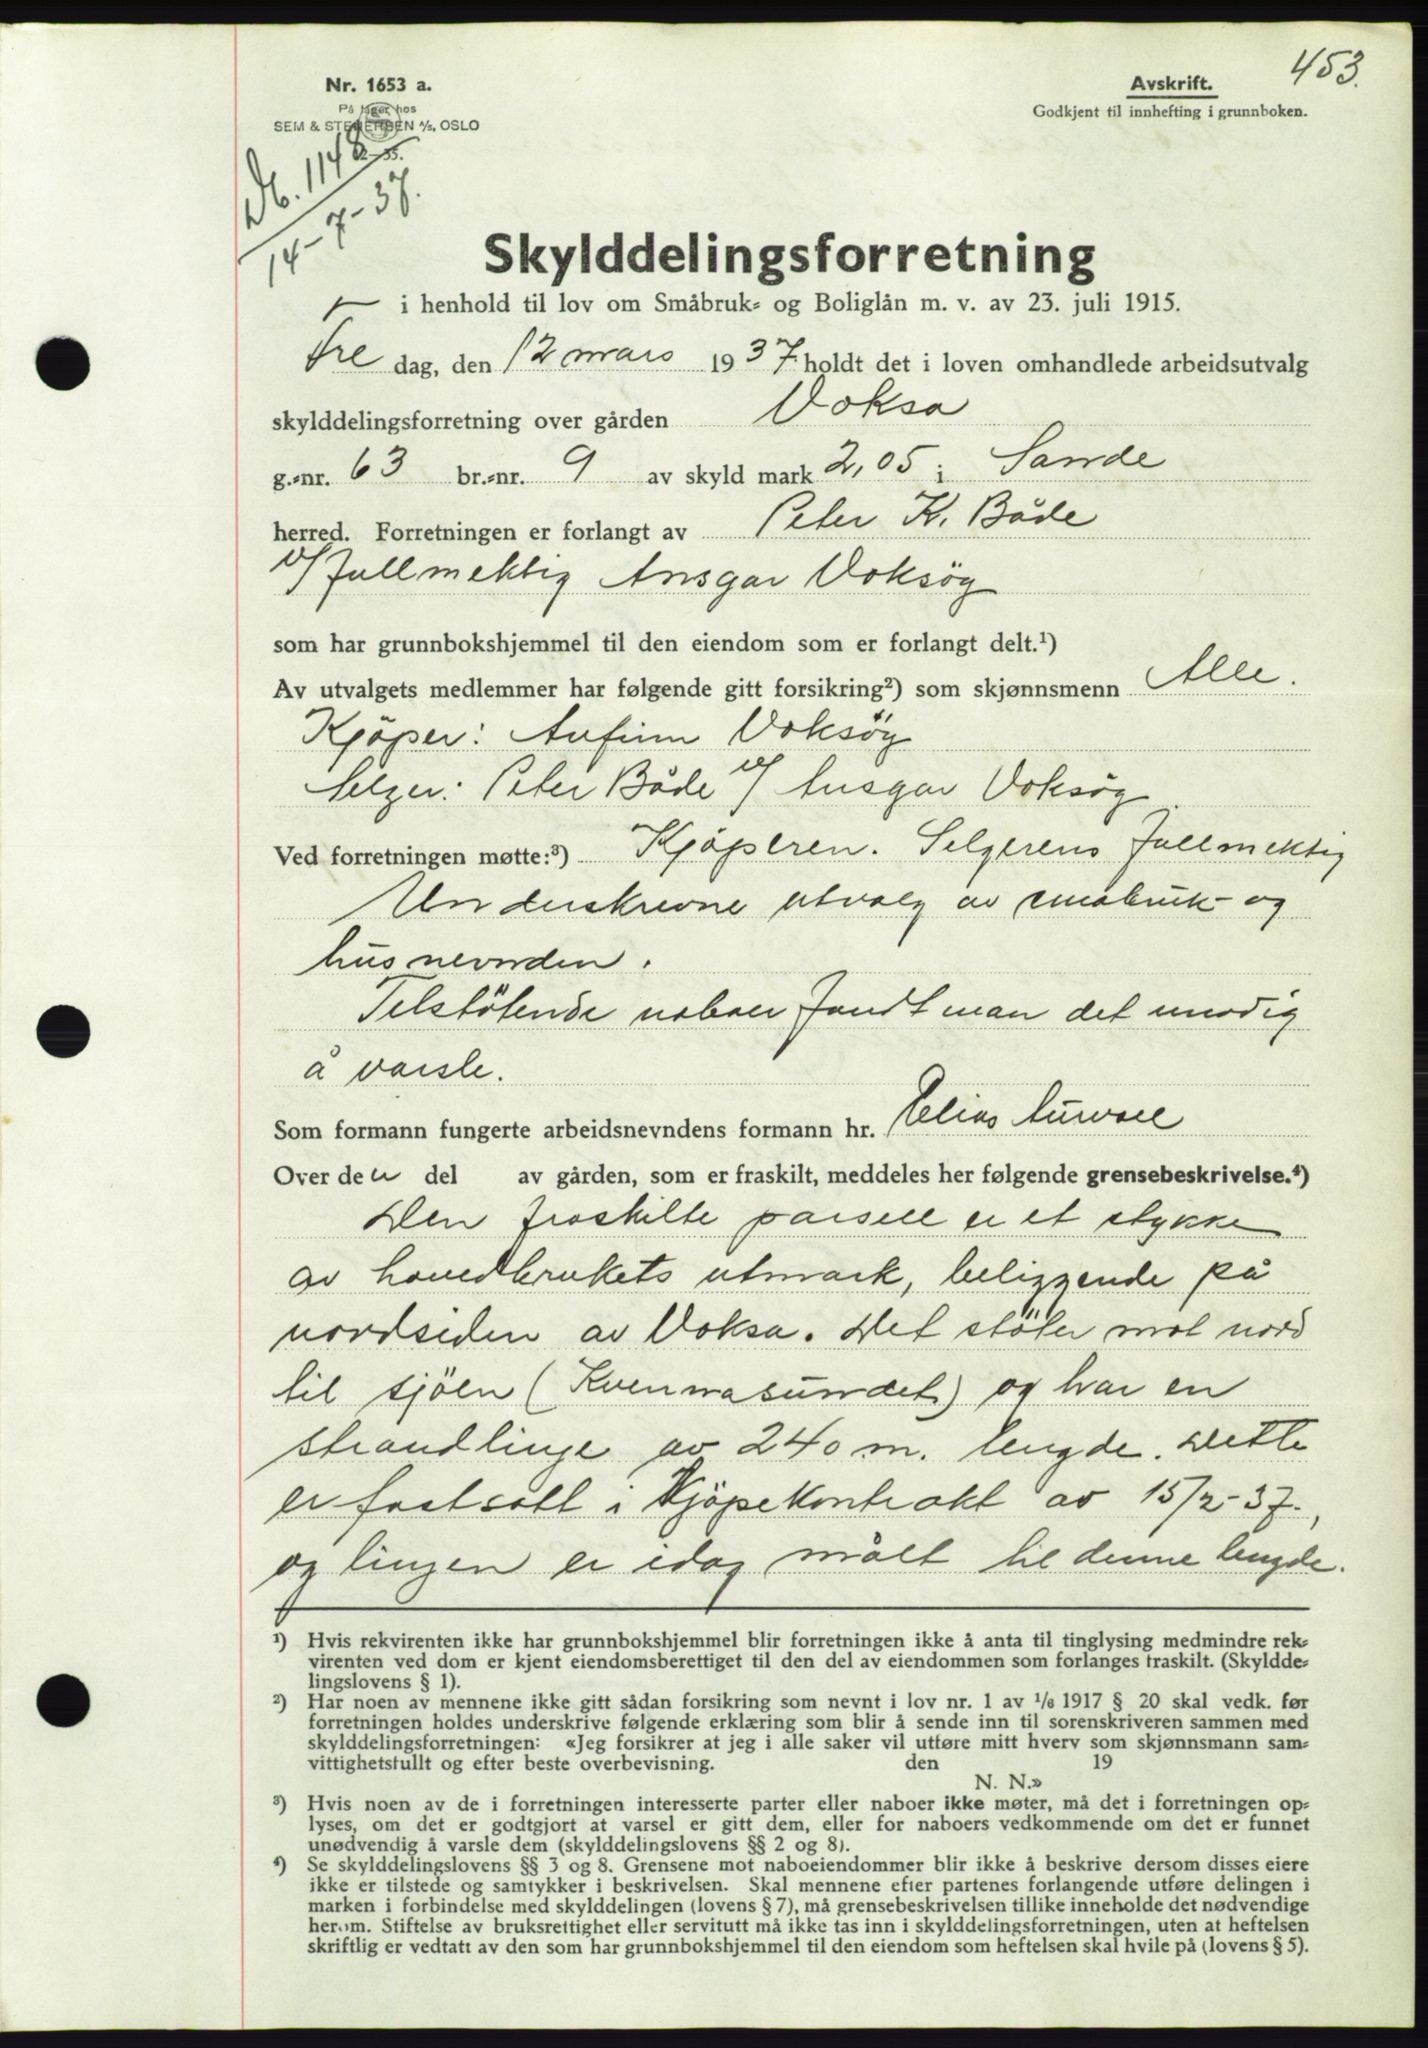 453.
Nr. 1653 a.
På lager hos
SEM & STENERSEN A/S, OSLO
Avskrift.
Godkjent til innhefting i grunnboken.
Db. 1148
14-7-37.
Skylddelingsforretning
i henhold til lov om Småbruk- og Boliglån m. v. av 23. juli 1915.
Fre dag, den 12 mars 1937. holdt det i loven omhandlede arbeidsutvalg
skylddelingsforretning over gården Voksa
g.-nr. 63 br.-nr. 9 av skyld mark 2,05 i Sande
herred. Forretningen er forlangt av Peter K. Både
v/ fullmektig Ansgar Voksöy
som har grunnbokshjemmel til den eiendom som er forlangt delt.¹)
Av utvalgets medlemmer har følgende gitt forsikring²) som skjønnsmenn Alle.
Kjöper: Anfinn Voksöy
Selger: Peter Både v/ Ansgar Voksöy
Ved forretningen møtte:³) Kjöperen. Selgerens fullmektig
Underskrevne utvalg av småbruk- og
husnevnden.
Tilstötende naboer fandt man det unödig
å varsle.
Som formann fungerte arbeidsnevndens formann hr. Elias Aurvoll
Over den del av gården, som er fraskilt, meddeles her følgende grensebeskrivelse.⁴)
Den fraskilte parsell er et stykke
av hovedbrukets utmark, beliggende på
nordsiden av Voksa. Det stöter mot nord
til sjöen (Kvennasundet) og har en
strandlinje av 240 m. lengde. Dette
er fastsatt i Kjöpekontrakt av 15/2-37.,
og linjen er idag målt til denne lengde.
¹) Hvis rekvirenten ikke har grunnbokshjemmel blir forretningen ikke å anta til tinglysing medmindre rek-
virenten ved dom er kjent eiendomsberettiget til den del av eiendommen som forlanges fraskilt. (Skyldde-
lingslovens § 1).
²) Har noen av mennene ikke gitt sådan forsikring som nevnt i lov nr. 1 av 1/6 1917 § 20 skal vedk. før
forretningen holdes underskrive følgende erklæring som blir å sende inn til sorenskriveren sammen med
skylddelingsforretningen: «Jeg forsikrer at jeg i alle saker vil utføre mitt hverv som skjønnsmann sam-
vittighetsfullt og efter beste overbevisning. den 19
N. N.»
³) Hvis noen av de i forretningen interesserte parter eller naboer ikke møter, må det i forretningen op-
lyses, om det er godtgjort at varsel er gitt dem, eller for naboers vedkommende om det er funnet
unødvendig å varsle dem (skylddelingslovens §§ 2 og 8).
⁴) Se skylddelingslovens §§ 3 og 8. Grensene mot naboeiendommer blir ikke å beskrive dersom disses eiere
ikke er tilstede og samtykker i beskrivelsen. Skal mennene efter partenes forlangende utføre delingen i
marken i forbindelse med skylddelingen (lovens § 7), må grensebeskrivelsen tillike inneholde det nødvendige
herom. Stiftelse av bruksrettighet eller servitutt må ikke tas inn i skylddelingsforretningen, uten at heftelsen
skriftlig er vedtatt av den som har grunnbokshjemmel til den eiendom som heftelsen skal hvile på (lovens § 5).